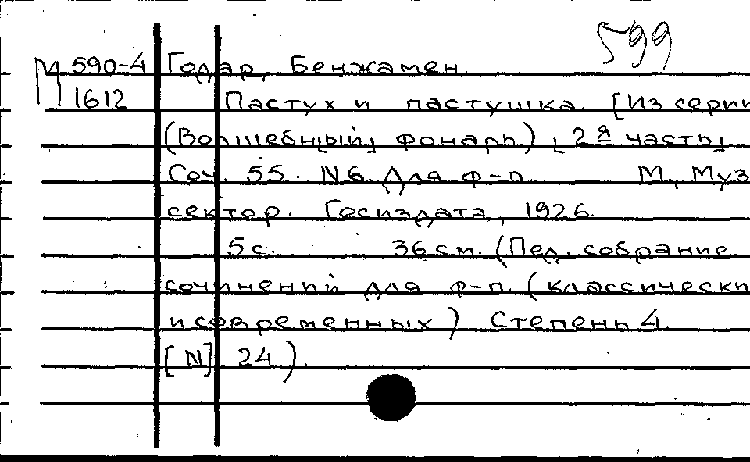 599
М 590-4 Годар, Бенжамен.
1612 Пастух и пастушка. [Из серии
(Волшебный фонарь) [2я часть]
Соч. 55. N6. Для ф-п. М, Муз
сектор. Госиздата, 1926.
5 с. 36 см. (Пед. собрание
сочинений для ф-п. (классически
и современных) Степень 4.
[N] 24).